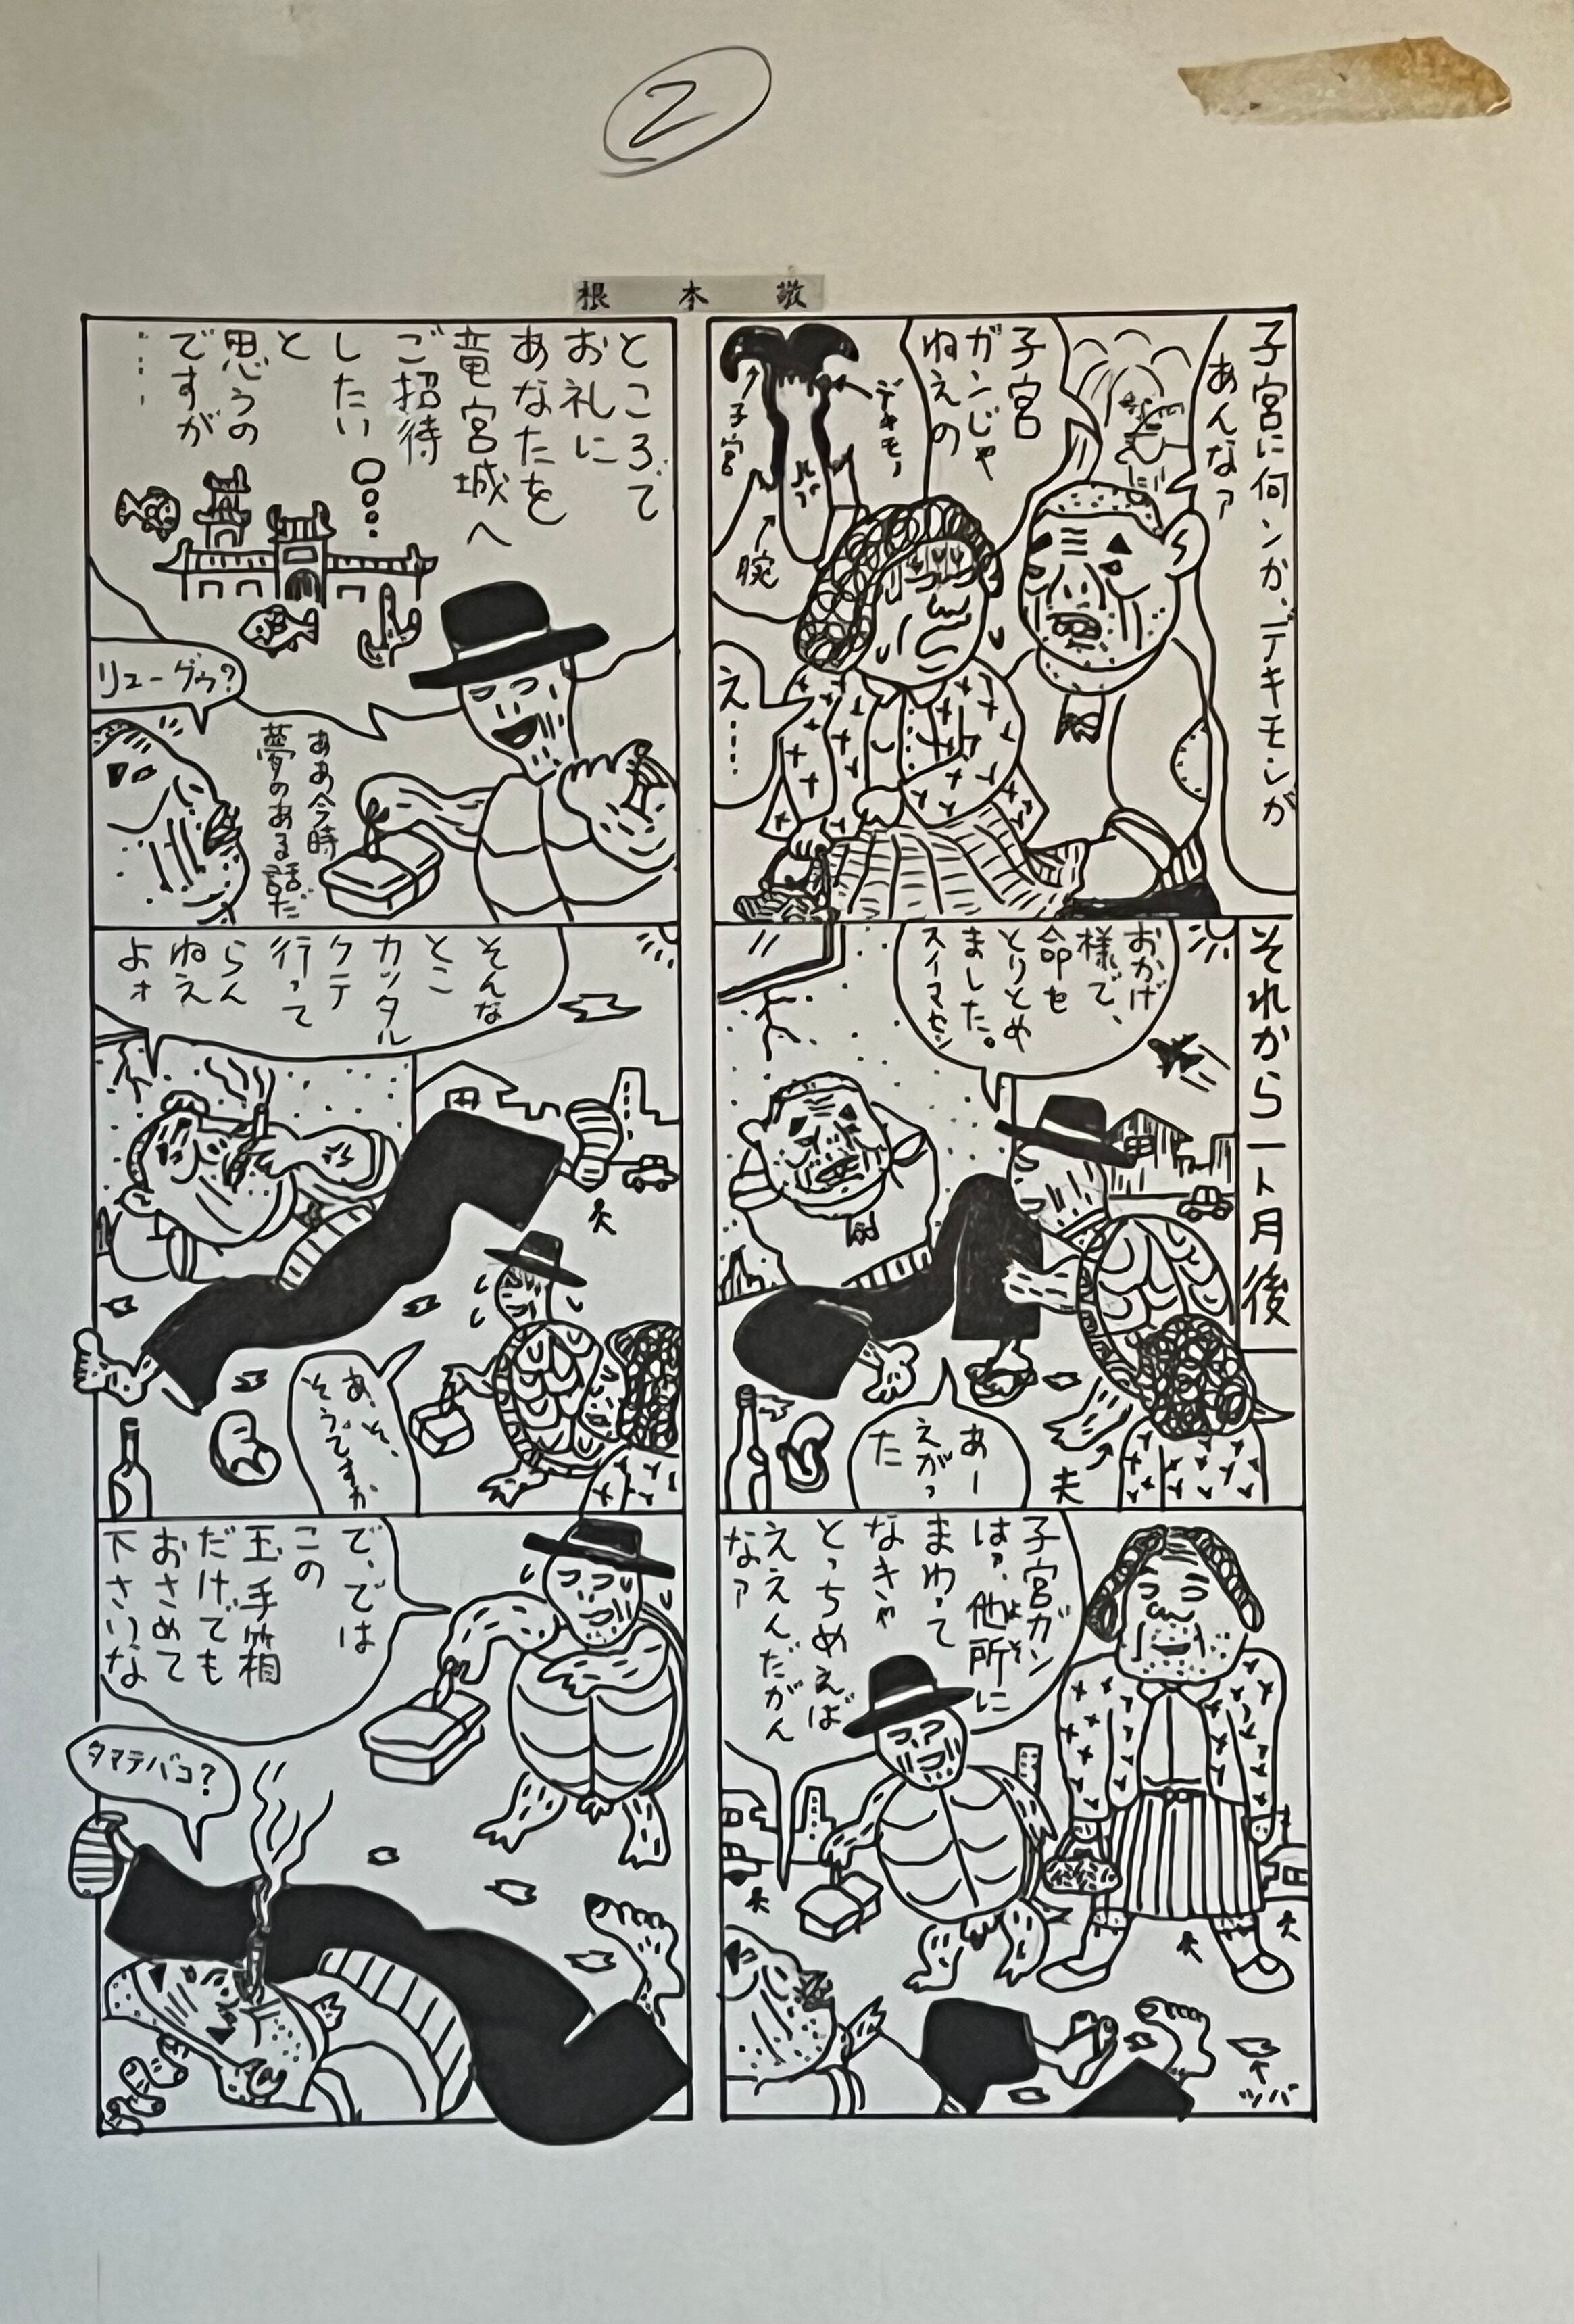 2
根本敬
子宮に何ンかデキモンが
あんなァ
子宮
ガンじゃ
ねえの
デキモノ
子宮
腕
え……
それから一ト月後
おかげ
様で、
命を
とりとめ
ました。
スイマセン
あー
えがっ
た
夫
子宮ガン
はァ、他所に
よそ
まわって
なきゃ
とっちめえば
ええんだがん
なァ
ツバ
ところで
お礼に
あなたを
竜宮城へ
ご招待
したい
と
思うの
ですが
……
リューグゥ?
ああ今時
夢のある話だ
そんな
とこ
カッタル
クテ
行って
らん
ねえ
よォ
あ、そ、
そうですか
で、では
この
玉手箱
だけでも
おさめて
下さいな
タマテバコ?